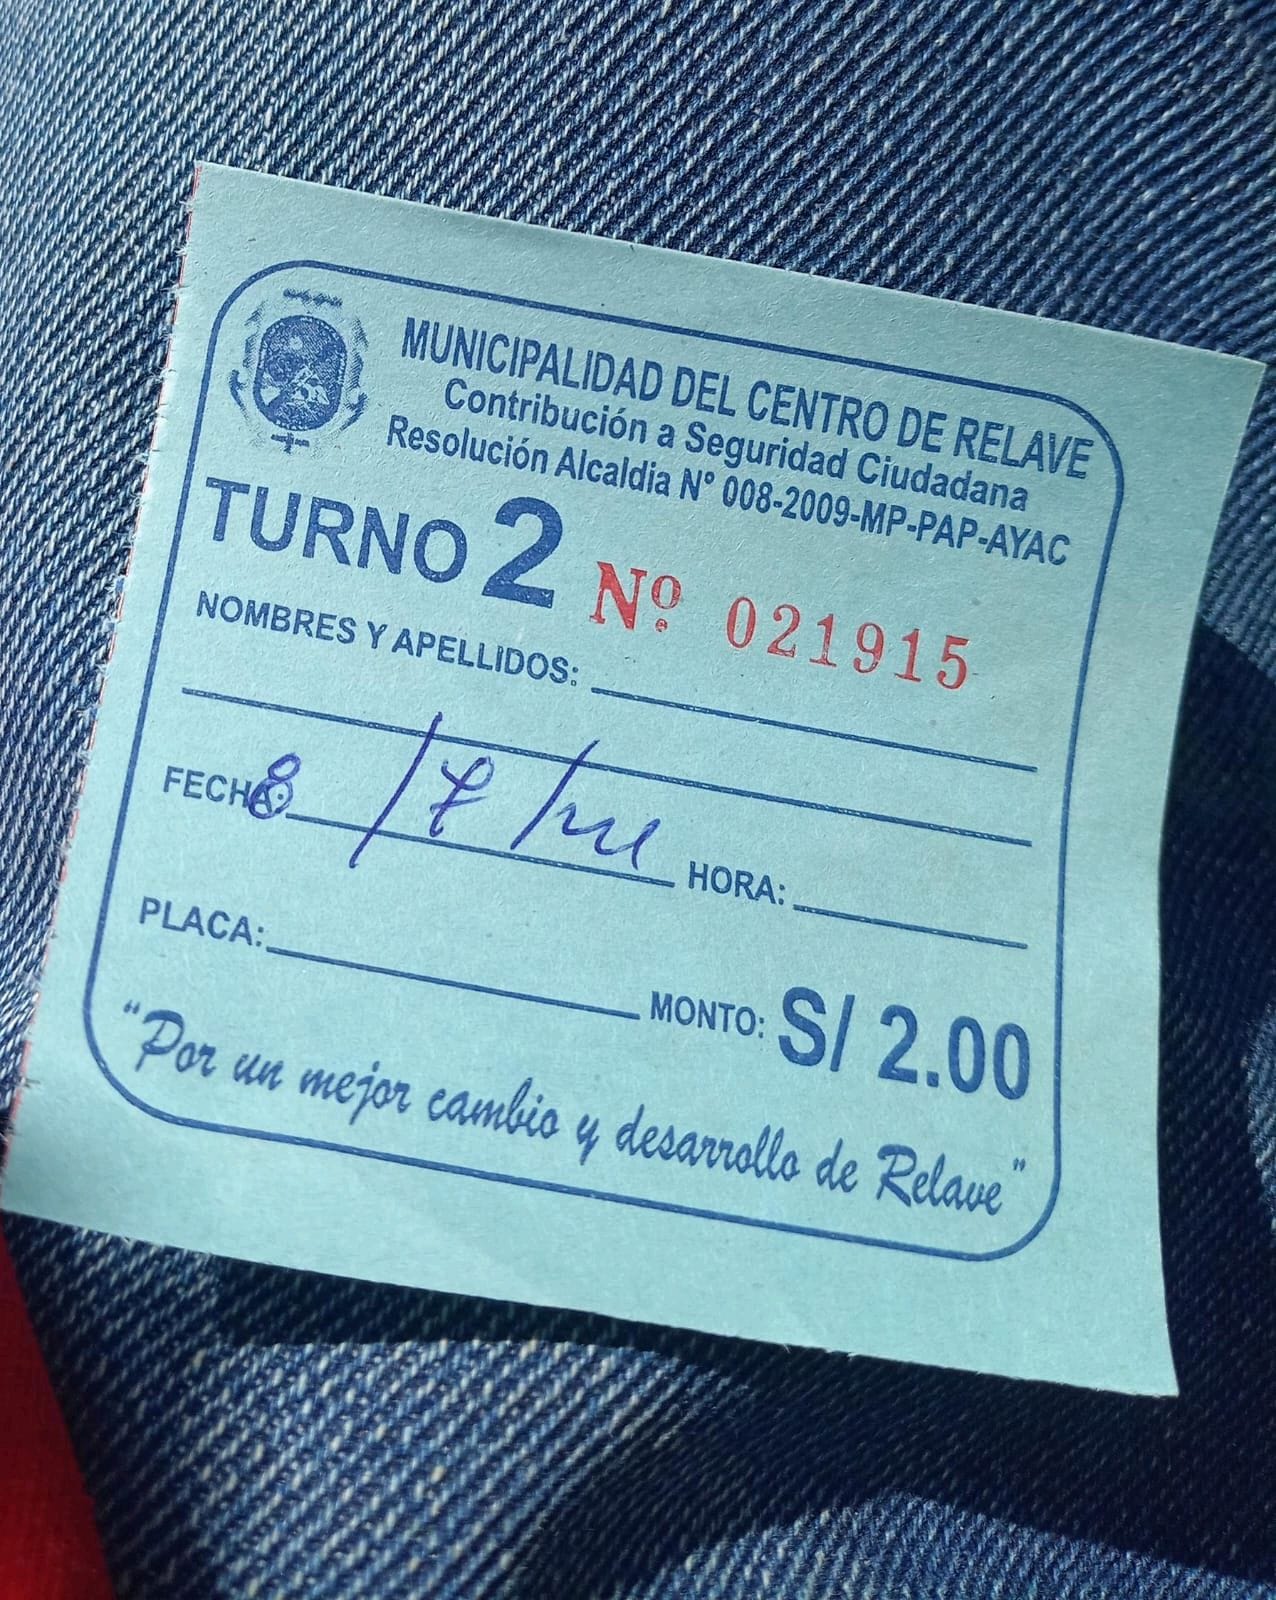 MUNICIPALIDAD DEL CENTRO DE RELAVE
Contribución a Seguridad Ciudadana
Resolución Alcaldia N° 008-2009-MP-PAP-AYAC
TURNO 2 Nº 021915
NOMBRES Y APELLIDOS:
FECHA: 8/7/ HORA:
PLACA:
MONTO: S/ 2.00
"Por un mejor cambio y desarrollo de Relave"